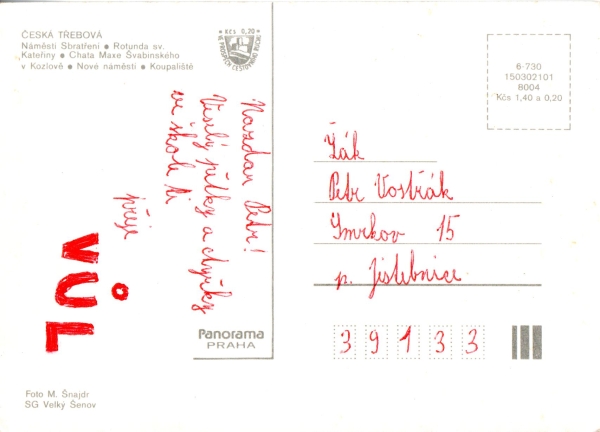 ČESKÁ TŘEBOVÁ
Náměstí Sbratření ● Rotunda sv.
Kateřiny ● Chata Maxe Švabinského
v Kozlově ● Nové náměstí ● Koupaliště
Kčs 0,20
VE PROSPĚCH CESTOVNÍHO RUCHU
6-730
150302101
8004
Kčs 1,40 a 0,20
Nazdar Petr!
Veselý pětky a čtyřky
ve škole ti
přeje
VŮL
Žák
Petr Vostřák
Smrkov 15
p. Jistebnice
39133
Panorama
PRAHA
Foto M. Šnajdr
SG Velký Šenov